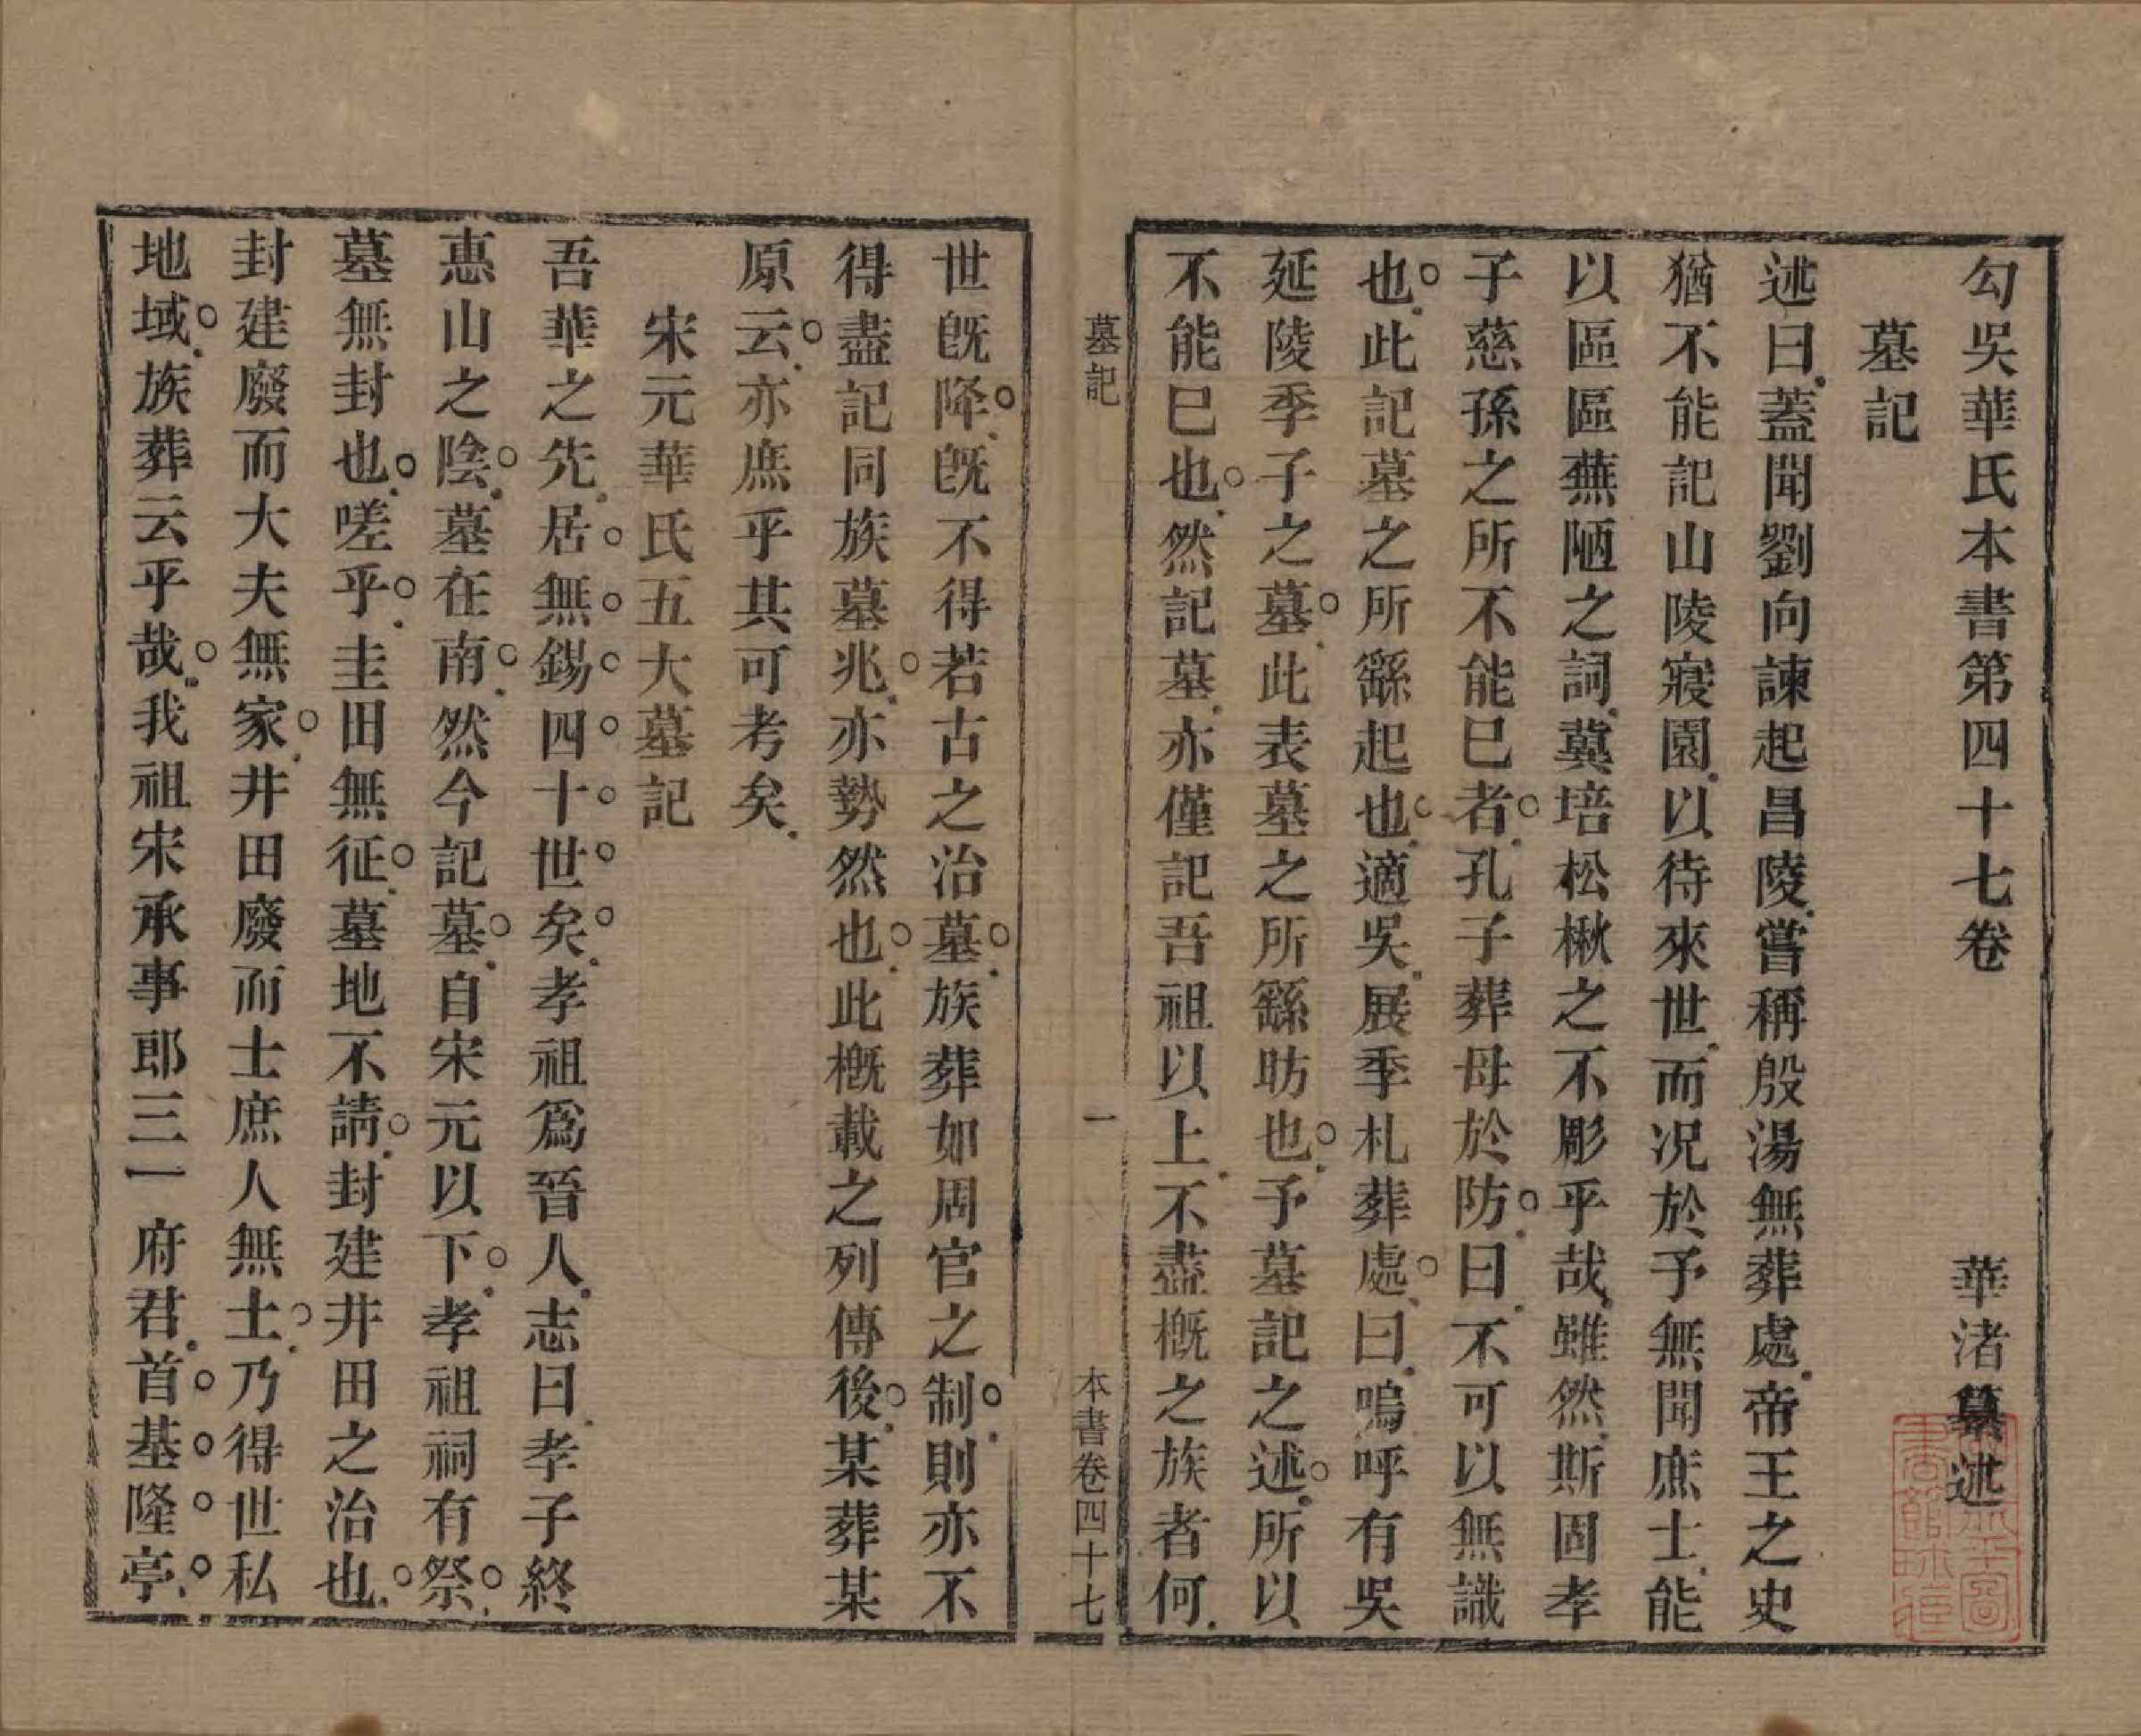 勾吳華氏本書第四十七卷 華渚纂述
墓記
述曰蓋聞劉向諫起昌陵嘗稱殷湯無葬處帝王之史
猶不能記山陵寢園以待來世而况於予無聞庶士能
以區區蕪陋之詞冀培松楸之不彫乎哉雖然斯固孝
子慈孫之所不能已者孔子葬母於防曰不可以無識
也此記墓之所繇起也適吳展季札葬處曰嗚呼有吳
延陵季子之墓此表墓之所繇昉也予墓記之述所以
不能已也然記墓亦僅記吾祖以上不盡槪之族者何
墓記
一
本書卷四十七
世旣降旣不得若古之治墓族葬如周官之制則亦不
得盡記同族墓兆亦勢然也此槪載之列傳後某葬某
原云亦庶乎其可考矣
宋元華氏五大墓記
吾華之先居無錫四十世矣孝祖爲晉人志曰孝子終
惠山之陰墓在南然今記墓自宋元以下孝祖祠有祭
墓無封也嗟乎圭田無征墓地不請封建井田之治也
封建廢而大夫無家井田廢而士庶人無士乃得世私
地域族葬云乎哉我祖宋承事郎三一府君首基隆亭